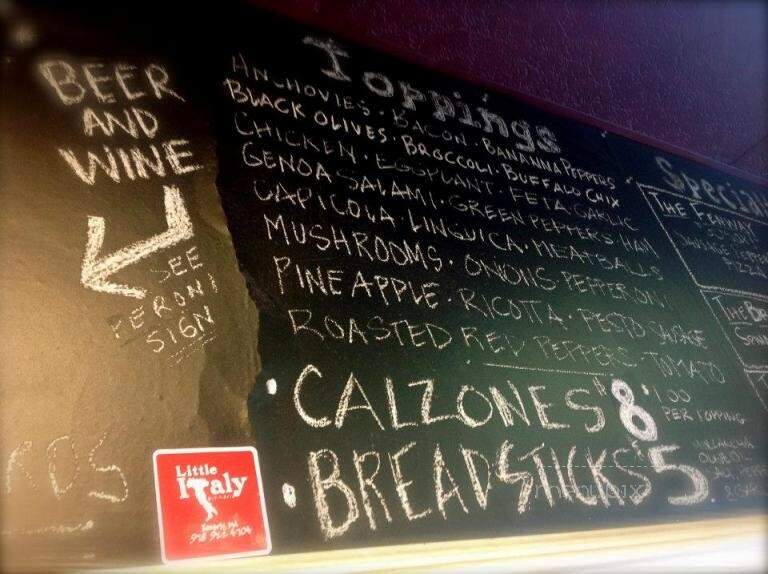 BEER
AND
WINE
SEE
PERONI
SIGN
Toppings
ANCHOVIES · BACON · BANANNA PEPPERS
BLACK OLIVES · BROCCOLI · BUFFALO CHIX
CHICKEN · EGGPLANT · FETA · GARLIC
GENOA SALAMI · GREEN PEPPERS · HAM
CAPICOLA · LINGUICA · MEATBALLS
MUSHROOMS · ONIONS · PEPPERONI
PINEAPPLE · RICOTTA · PESTO SAUSAGE
ROASTED RED PEPPERS · TOMATO
· CALZONES $8
1.00
PER TOPPING
· BREADSTICKS $5
Special
THE FENWAY
Little
Italy